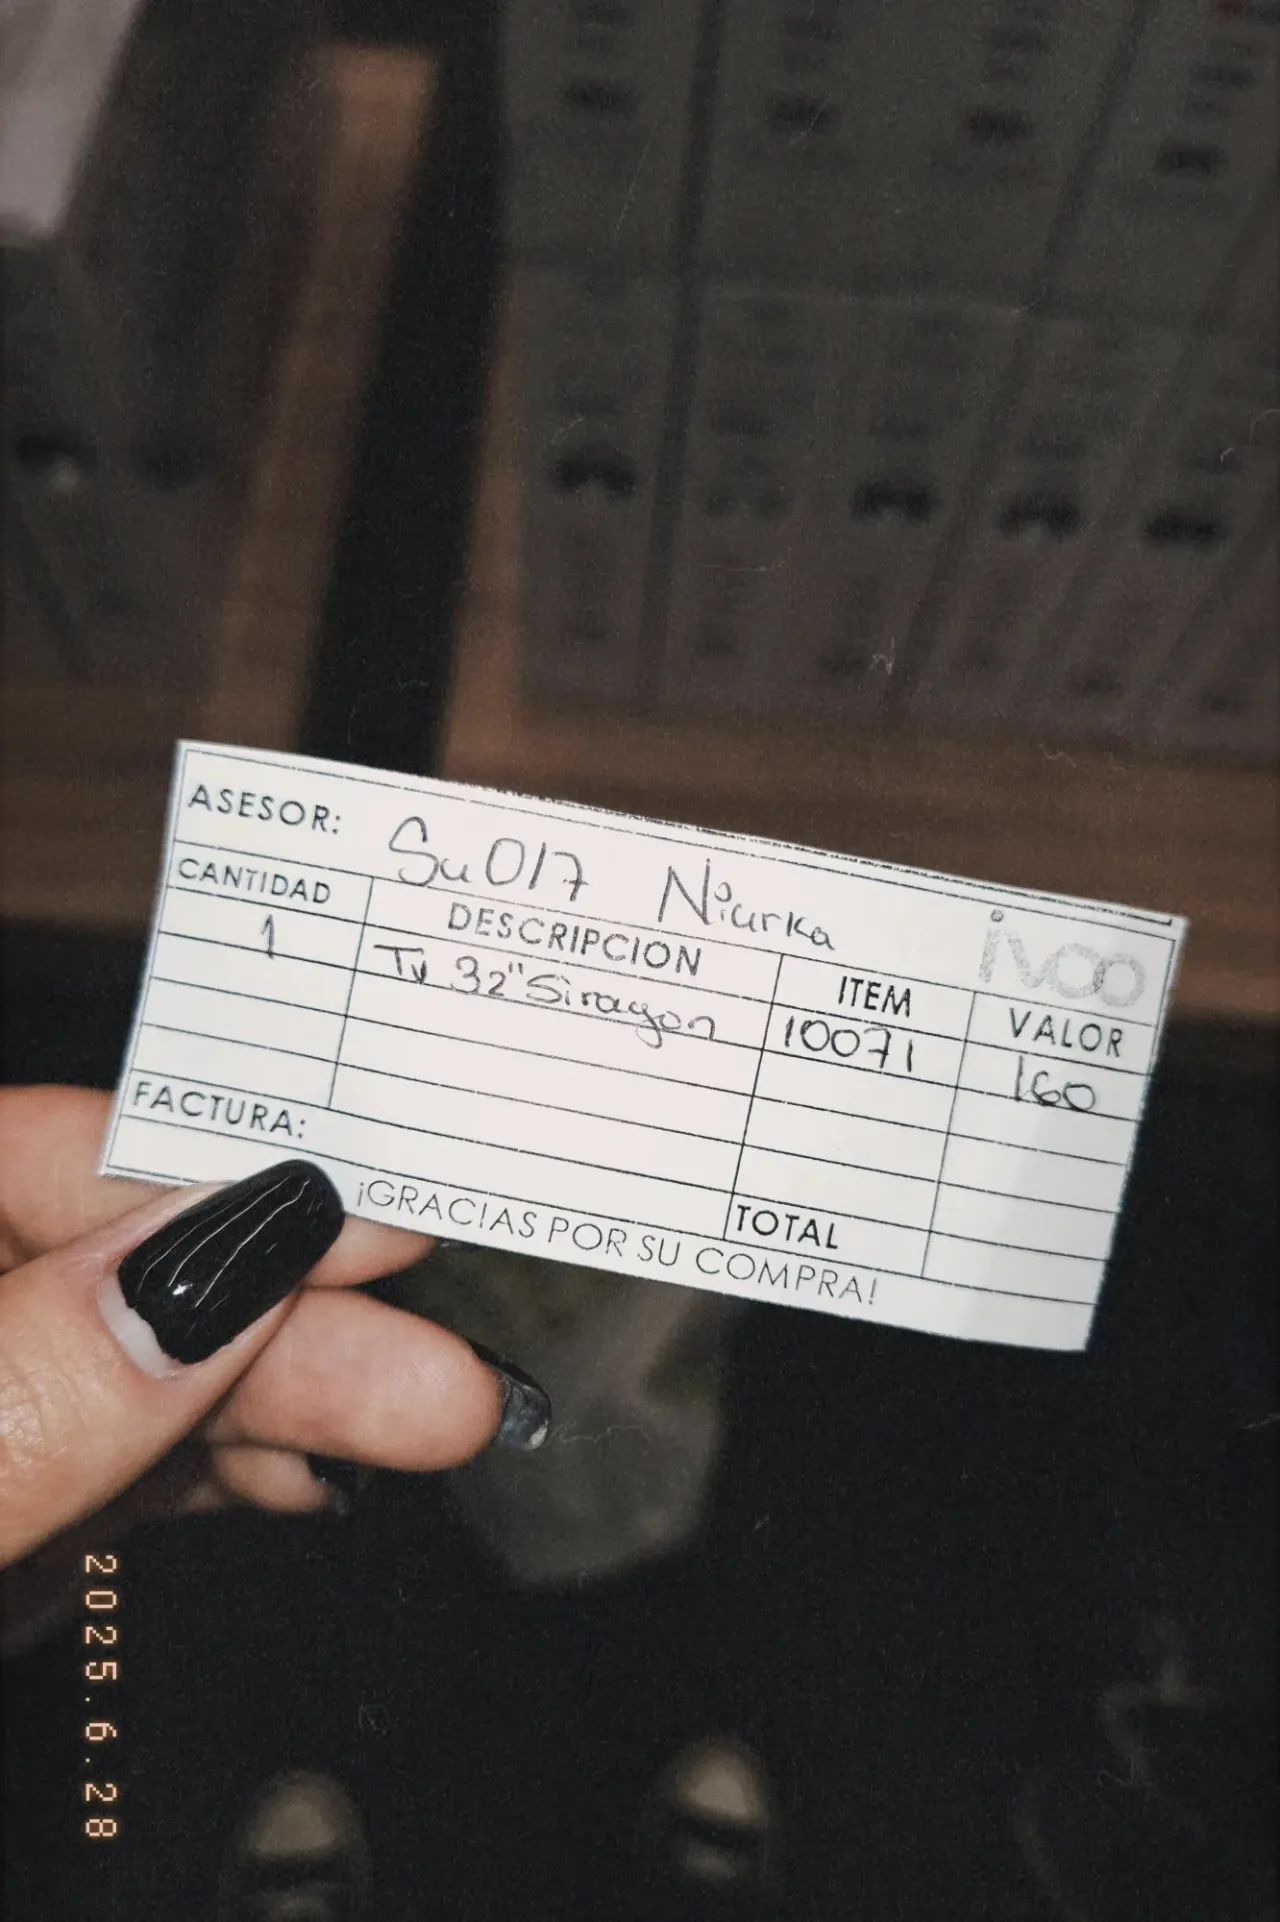 ASESOR: Su017 Niurka
ivoo
CANTIDAD DESCRIPCION ITEM VALOR
1 Tv 32" Siragon 10071 160
FACTURA:
TOTAL
¡GRACIAS POR SU COMPRA!
2025.6.28